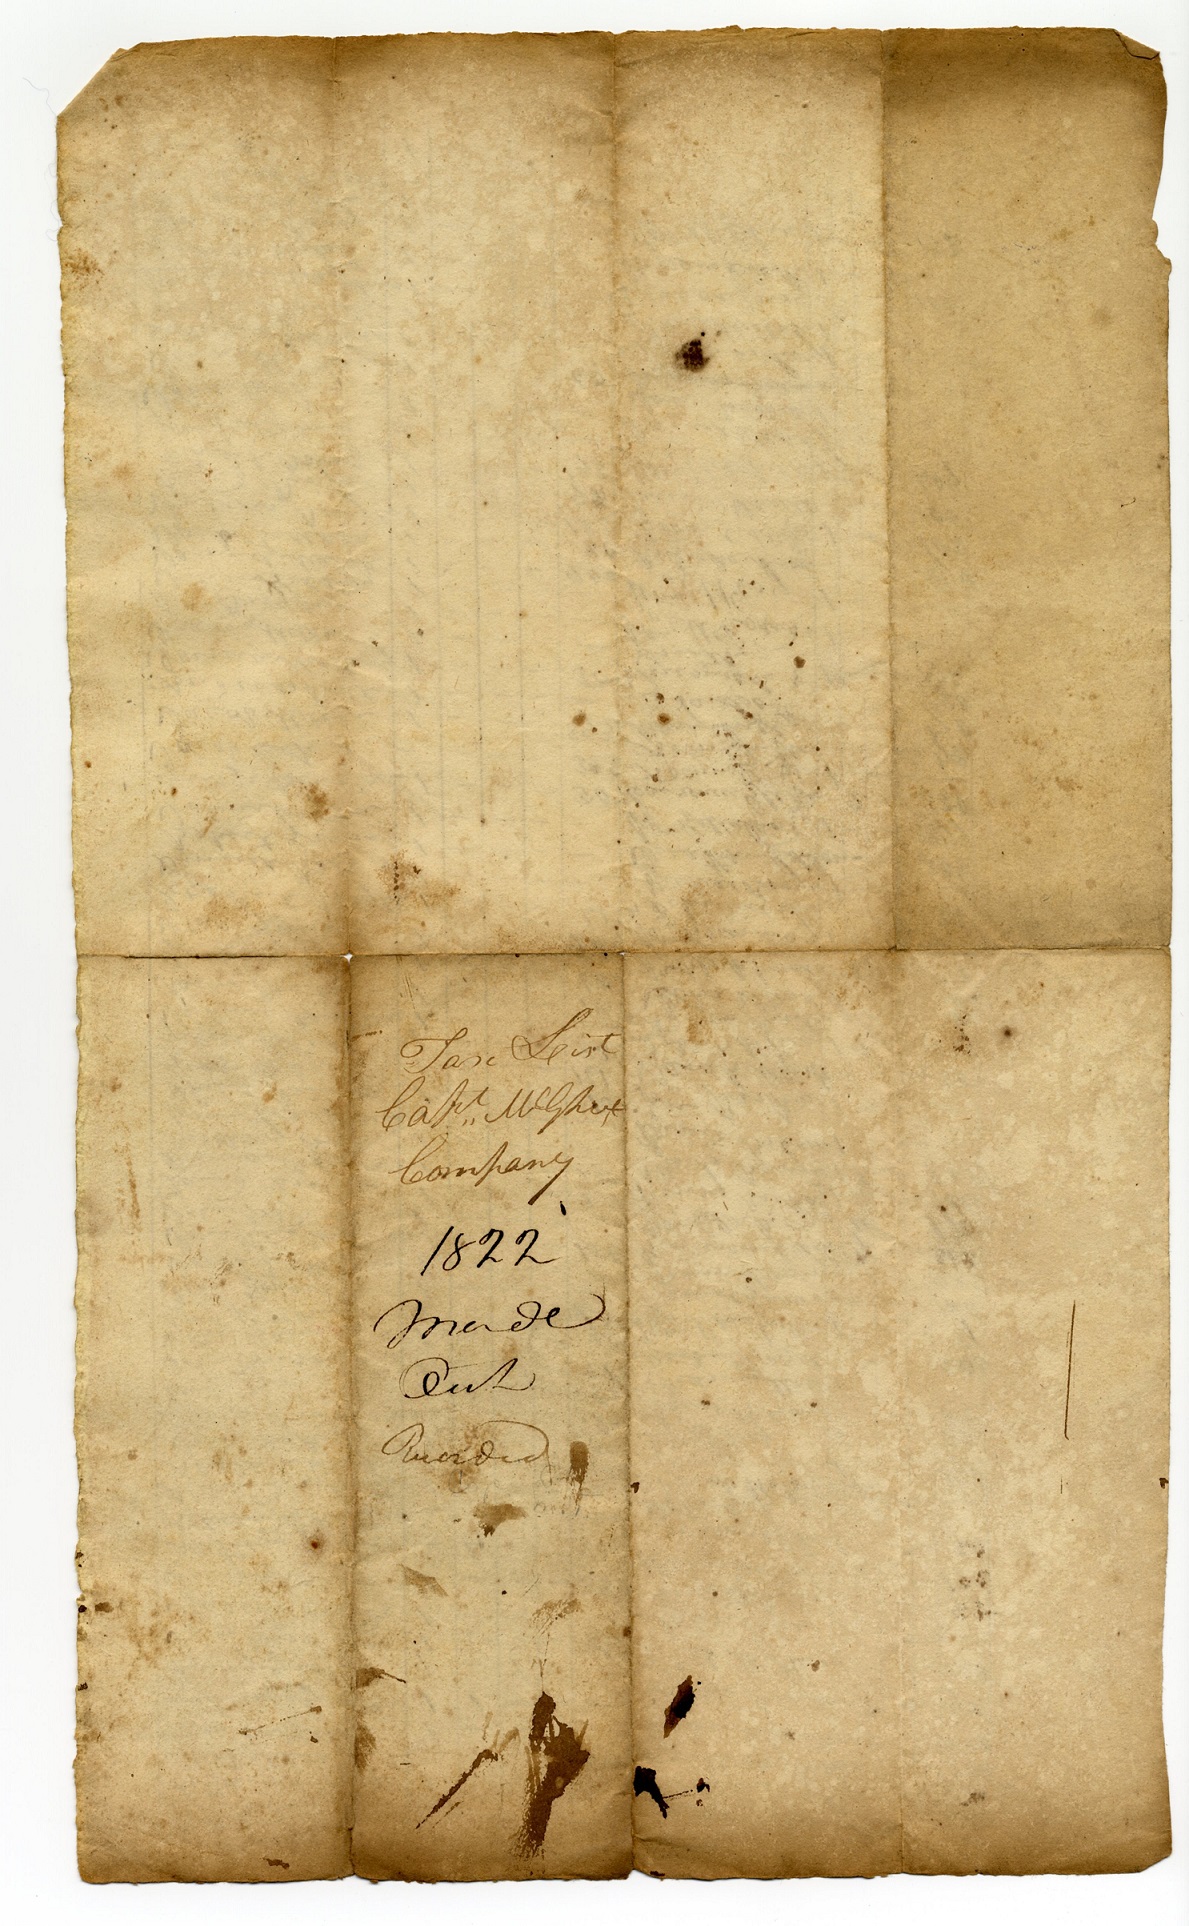 Tax List
Capt. McGhee
Company
1822
Made
Out
Recorded